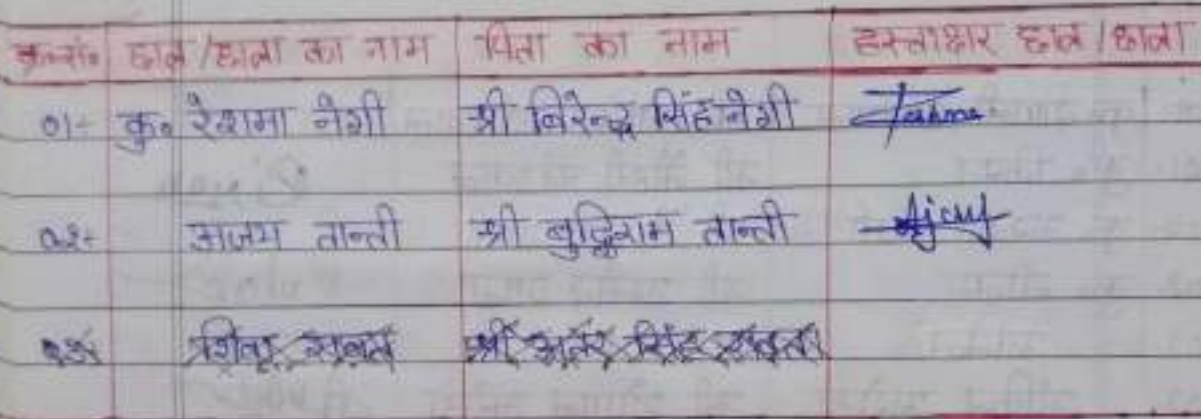 क्र०सं० छात्र/छात्रा का नाम पिता का नाम हस्ताक्षर छात्र/छात्रा
01- कु० रेशमा नेगी श्री विरेन्द्र सिंह नेगी
02- अजय तान्ती श्री बुद्धिराम तान्ती Ajay
श्री सिंह रावत